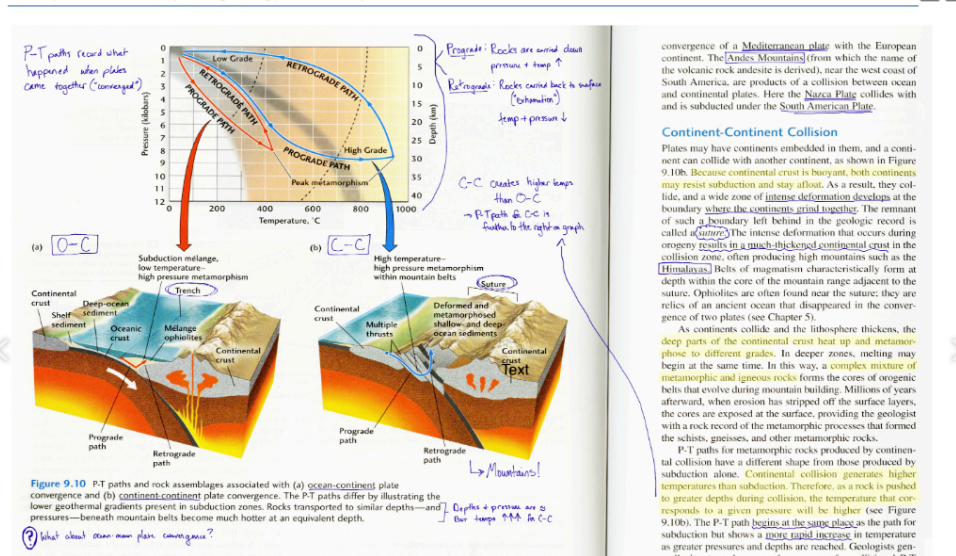 P-T paths record what
happened when plates
came together ("converged")
Pressure (kilobars)
0
1
2
3
4
5
6
7
8
9
10
11
12
Low Grade
RETROGRADE PATH
RETROGRADE PATH
PROGRADE PATH
PROGRADE PATH
High Grade
Peak metamorphism
0
200
400
600
800
1000
Temperature, °C
0
5
10
15
20
25
30
35
40
Depth (km)
Prograde: Rocks are carried down
pressure + temp ↑
Retrograde: Rocks carried back to surface
("exhumation")
temp + pressure ↓
C-C creates higher temps
than O-C
→ P-T path for C-C is
further to the right on graph
(a) O-C
Subduction mélange,
low temperature–
high pressure metamorphism
Trench
Continental
crust
Shelf
sediment
Deep-ocean
sediment
Oceanic
crust
Mélange
ophiolites
Continental
crust
Prograde
path
Retrograde
path
(b) C-C
High temperature–
high pressure metamorphism
within mountain belts
Suture
Continental
crust
Multiple
thrusts
Deformed and
metamorphosed
shallow- and deep-
ocean sediments
Continental
crust
Text
Prograde
path
Retrograde
path
↳ Mountains!
Figure 9.10 P-T paths and rock assemblages associated with (a) ocean-continent plate
convergence and (b) continent-continent plate convergence. The P-T paths differ by illustrating the
lower geothermal gradients present in subduction zones. Rocks transported to similar depths—and
pressures—beneath mountain belts become much hotter at an equivalent depth.
Depths + pressure are ≈
But temps ↑↑↑ for C-C
? What about ocean-ocean plate convergence?
convergence of a Mediterranean plate with the European
continent. The Andes Mountains (from which the name of
the volcanic rock andesite is derived), near the west coast of
South America, are products of a collision between ocean
and continental plates. Here the Nazca Plate collides with
and is subducted under the South American Plate.
Continent-Continent Collision
Plates may have continents embedded in them, and a conti-
nent can collide with another continent, as shown in Figure
9.10b. Because continental crust is buoyant, both continents
may resist subduction and stay afloat. As a result, they col-
lide, and a wide zone of intense deformation develops at the
boundary where the continents grind together. The remnant
of such a boundary left behind in the geologic record is
called a suture. The intense deformation that occurs during
orogeny results in a much-thickened continental crust in the
collision zone, often producing high mountains such as the
Himalayas. Belts of magmatism characteristically form at
depth within the core of the mountain range adjacent to the
suture. Ophiolites are often found near the suture; they are
relics of an ancient ocean that disappeared in the conver-
gence of two plates (see Chapter 5).
As continents collide and the lithosphere thickens, the
deep parts of the continental crust heat up and metamor-
phose to different grades. In deeper zones, melting may
begin at the same time. In this way, a complex mixture of
metamorphic and igneous rocks forms the cores of orogenic
belts that evolve during mountain building. Millions of years
afterward, when erosion has stripped off the surface layers,
the cores are exposed at the surface, providing the geologist
with a rock record of the metamorphic processes that formed
the schists, gneisses, and other metamorphic rocks.
P-T paths for metamorphic rocks produced by continen-
tal collision have a different shape from those produced by
subduction alone. Continental collision generates higher
temperatures than subduction. Therefore, as a rock is pushed
to greater depths during collision, the temperature that cor-
responds to a given pressure will be higher (see Figure
9.10b). The P-T path begins at the same place as the path for
subduction but shows a more rapid increase in temperature
as greater pressures and depths are reached. Geologists gen-